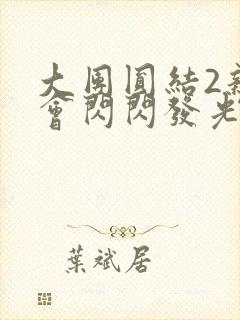 大団圓結2新
會閃閃發光
葉斌居